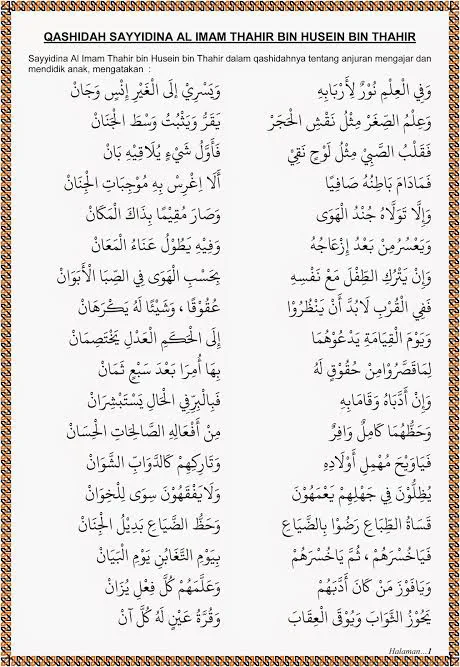 QASHIDAH SAYYIDINA AL IMAM THAHIR BIN HUSEIN BIN THAHIR
Sayyidina Al Imam Thahir bin Husein bin Thahir dalam qashidahnya tentang anjuran mengajar dan
mendidik anak, mengatakan :
وَفِي الْعِلْمِ نُوْرٌ لِأَرْبَابِهِ وَيَسْرِيْ إِلَى الْغَيْرِ إِنْسٍ وَجَانْ
وَعِلْمُ الصِّغَرْ مِثْلُ نَقْشِ الْحَجَرْ يَقَرُّ وَيَثْبُتُ وَسْطَ الْجَنَانْ
فَقَلْبُ الصَّبِيْ مِثْلُ لَوْحٍ نَقِيْ فَأَوَّلُ شَيْءٍ يُلَاقِيْهِ بَانْ
فَمَادَامَ بَاطِنُهُ صَافِيًا أَلَا اِغْرِسْ بِهِ مُوْجِبَاتِ الْجِنَانْ
وَإِلَّا تَوَلَّاهُ جُنْدُ الْهَوَى وَصَارَ مُقِيْمًا بِذَاكَ الْمَكَانْ
وَيَعْسُرُمِنْ بَعْدُ إِزْعَاجُهُ وَفِيْهِ يَطُوْلُ عَنَاءُ الْمَعَانْ
وَإِنْ يَتْرُكِ الطِّفْلَ مَعْ نَفْسِهِ بِحَسْبِ الْهَوَى فِي الصِّبَا الْأَبَوَانْ
فَفِي الْقُرْبِ لَابُدَّ أَنْ يَنْظُرُوْا عُقُوْقًا ، وَشَيْئًا لَهُ يَكْرَهَانْ
وَيَوْمَ الْقِيَامَةِ يَدْعُوْهُمَا إِلَى الْحَكَمِ الْعَدْلِ يَخْتَصِمَانْ
لِمَاقَصَّرُوْامِنْ حُقُوْقٍ لَهُ بِهَا أُمِرَا بَعْدَ سَبْعٍ ثَمَانْ
وَإِنْ أَدَّبَاهُ وَقَامَابِهِ فَبِالْبِرِّفِي الْحَالِ يَسْتَبْشِرَانْ
وَحَظُّهُمَا كَامِلٌ وَافِرٌ مِنْ أَفْعَالِهِ الصَّالِحَاتِ الْحِسَانْ
فَيَاوَيْحَ مُهْمِلِ أَوْلَادِهِ وَتَارِكِهِمْ كَالدَّوَابِّ السَّوَانْ
يُظِلُّوْنَ فِي جَهْلِهِمْ يَعْمَهُوْنَ وَلَايَفْقَهُوْنَ سِوَى لِلْخِوَانْ
قَسَاةُ الطِّبَاعِ رَضُوْا بِالضَّيَاعِ وَحَظُّ الضَّيَاعِ بَدِيْلُ الْجِنَانْ
فَيَاخُسْرَهُمْ ، ثُمَّ يَاخُسْرَهُمْ بِيَوْمِ التَّغَابُنِ يَوْمِ الْبَيَانْ
وَيَافَوْزَ مَنْ كَانَ أَدَّبَهُمْ وَعَلَّمَهُمْ كُلَّ فِعْلٍ يُزَانْ
يَحُوْزُ الثَّوَابَ وَيُوْقَى الْعِقَابَ وَقُرَّةُ عَيْنٍ لَهُ كُلَّ آنْ
Halaman...1